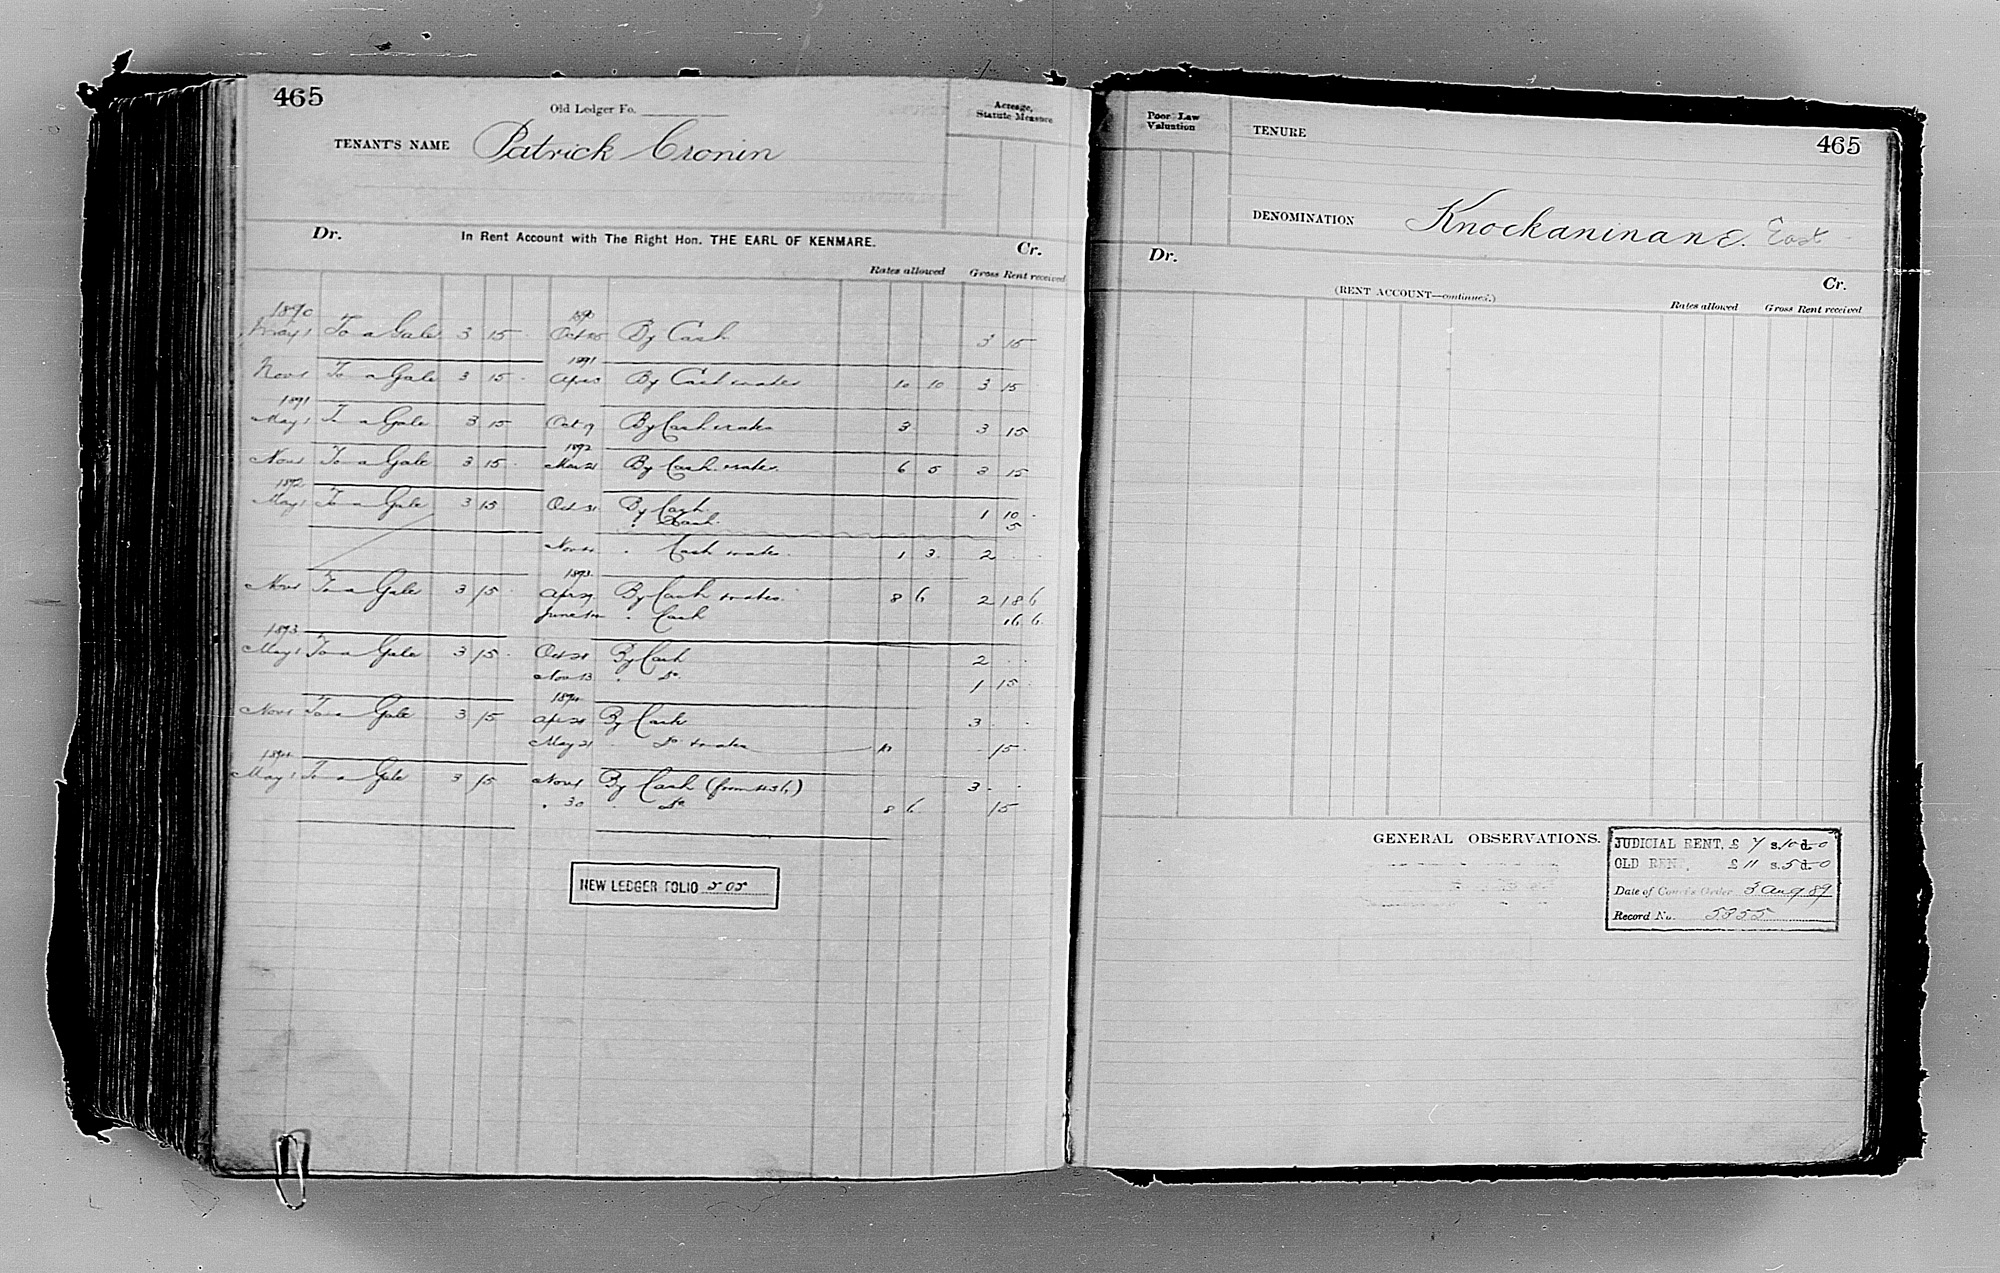 465
Old Ledger Fo.
Acreage, Statute Measure
TENANT'S NAME Patrick Cronin
Dr. In Rent Account with The Right Hon. THE EARL OF KENMARE. Cr.
Rates allowed Gross Rent received
1890 1890
May 1 To a Gale 3 15 Oct 25 By Cash 3 15
1891
Nov 1 To a Gale 3 15 Apr 3 By Cash & rates 10 10 3 15
1891
May 1 To a Gale 3 15 Oct 9 By Cash & rates 3 3 15
1892
Nov 1 To a Gale 3 15 Mar 21 By Cash & rates 6 5 3 15
1892
May 1 To a Gale 3 15 Oct 31 By Cash 1 10
" Cash 5
Nov " Cash & rates 1 3 2
1893
Nov 1 To a Gale 3 15 Apr 29 By Cash & rates 8 6 2 18 6
June " Cash 16 6
1893
May 1 To a Gale 3 15 Oct 21 By Cash 2
Nov 13 " Do. 1 15
1894
Nov 1 To a Gale 3 15 Apr 21 By Cash 3
May 21 " Do. & rates 10 15
1894
May 1 To a Gale 3 15 Nov 1 By Cash (from 436) 3
" 30 " Do 8 6 15
NEW LEDGER FOLIO 505
Poor Law Valuation
TENURE
465
DENOMINATION Knockaninane East
Dr. Cr.
(RENT ACCOUNT—continued.)
Rates allowed Gross Rent received
GENERAL OBSERVATIONS.
JUDICIAL RENT, £ 7 s. 10 d. 0
OLD RENT, £ 11 s. 5 d. 0
Date of Court's Order 3 Aug 89
Record No. 5355